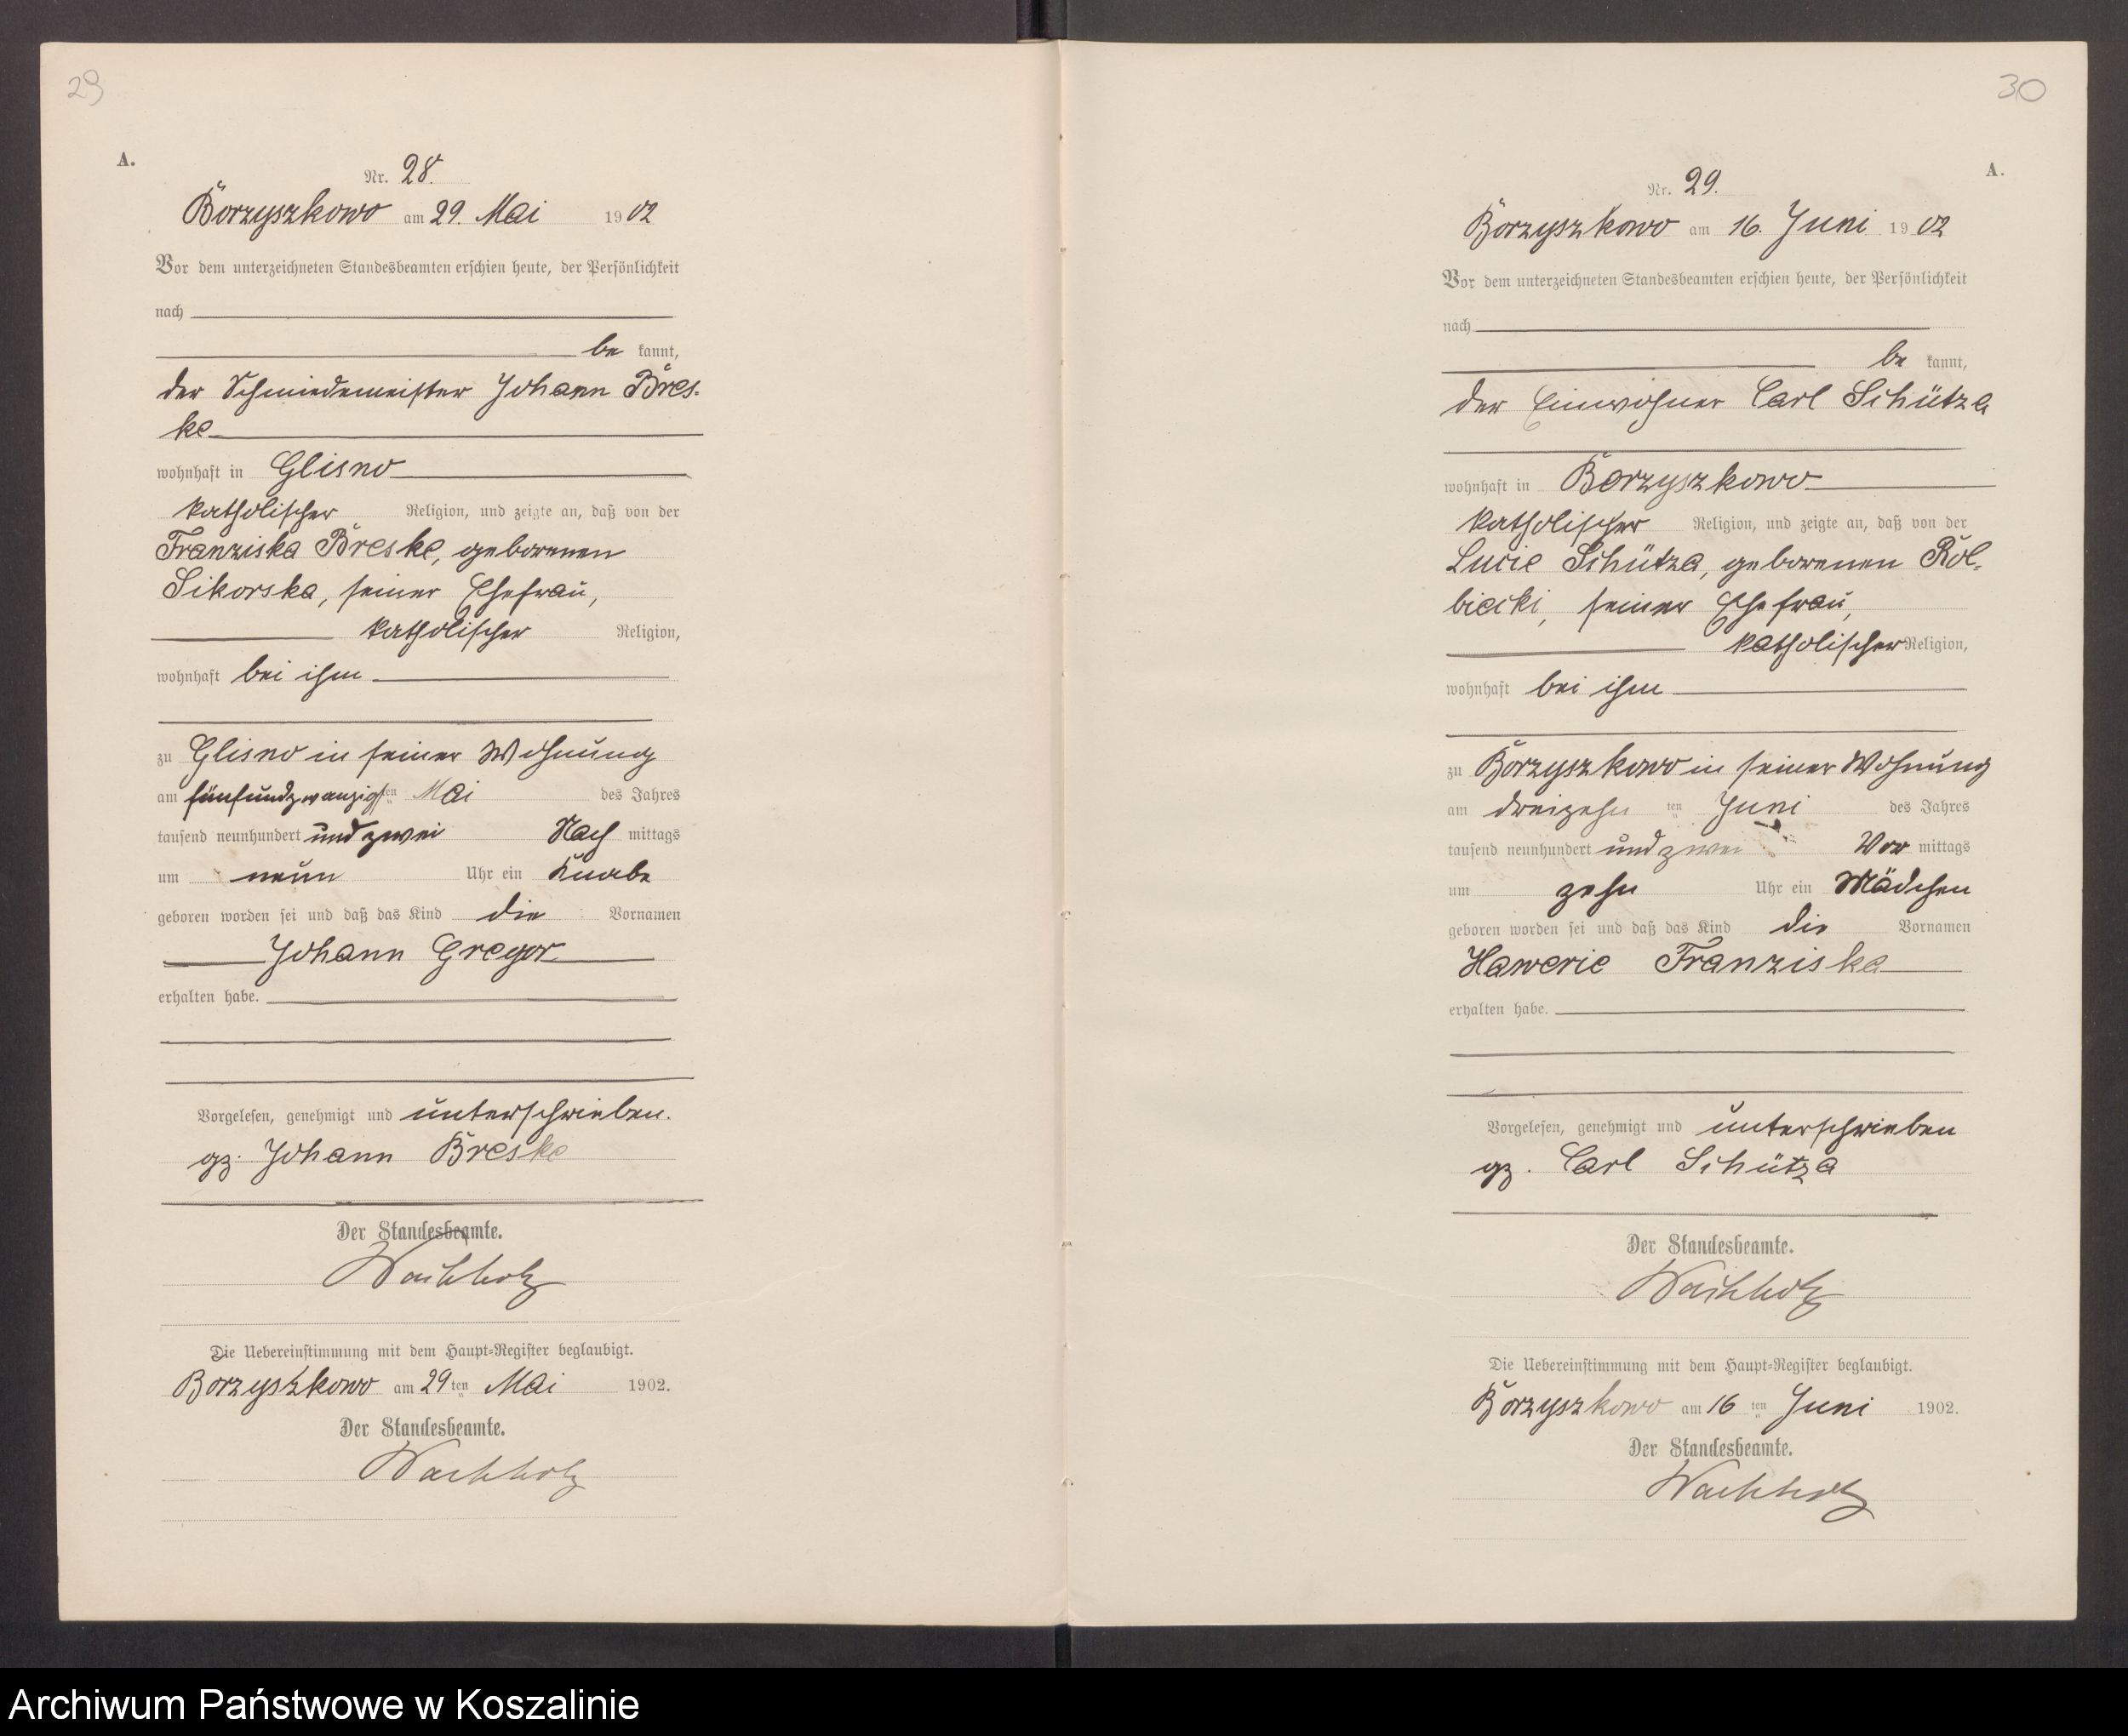 29
A.
Nr. 28.
Borzyszkowo am 29. Mai 1902
Vor dem unterzeichneten Standesbeamten erschien heute, der Persönlichkeit
nach
be kannt,
der Schmiedemeister Johann Bres-
ke
wohnhaft in Glisno
katholischer Religion, und zeigte an, daß von der
Franziska Breske, geborenen
Sikorska, seiner Ehefrau,
katholischer Religion,
wohnhaft bei ihm
zu Glisno in seiner Wohnung
am fünfundzwanzigsten Mai des Jahres
tausend neunhundert und zwei Nach mittags
um neun Uhr ein Knabe
geboren worden sei und daß das Kind die Vornamen
Johann Gregor
erhalten habe.
Vorgelesen, genehmigt und unterschrieben.
gz. Johann Breske
Der Standesbeamte.
Wachholz
Die Uebereinstimmung mit dem Haupt-Register beglaubigt.
Borzyszkowo am 29ten Mai 1902.
Der Standesbeamte.
Wachholz
30
A.
Nr. 29.
Borzyszkowo am 16. Juni 1902
Vor dem unterzeichneten Standesbeamten erschien heute, der Persönlichkeit
nach
be kannt,
der Einwohner Carl Schütza
wohnhaft in Borzyszkowo
katholischer Religion, und zeigte an, daß von der
Lucie Schütza, geborenen Rol-
biecki, seiner Ehefrau,
katholischer Religion,
wohnhaft bei ihm
zu Borzyszkowo in seiner Wohnung
am dreizehn ten Juni des Jahres
tausend neunhundert und zwei Vor mittags
um zehn Uhr ein Mädchen
geboren worden sei und daß das Kind die Vornamen
Hawerie Franziska
erhalten habe.
Vorgelesen, genehmigt und unterschrieben
gz. Carl Schütza
Der Standesbeamte.
Wachholz
Die Uebereinstimmung mit dem Haupt-Register beglaubigt.
Borzyszkowo am 16 ten Juni 1902.
Der Standesbeamte.
Wachholz
Archiwum Państwowe w Koszalinie